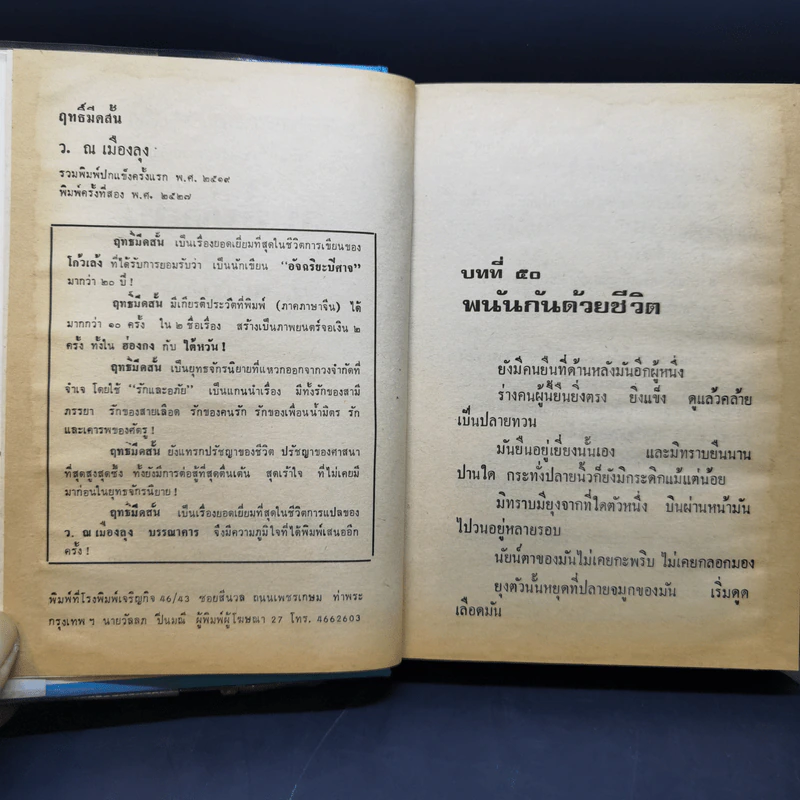 ฤทธิ์มีดสั้น
ว. ณ เมืองลุง
รวมพิมพ์ปกแข็งครั้งแรก พ.ศ. ๒๕๑๙
พิมพ์ครั้งที่สอง พ.ศ. ๒๕๒๗
ฤทธิ์มีดสั้น เป็นเรื่องยอดเยี่ยมที่สุดในชีวิตการเขียนของ
โก้วเล้ง ที่ได้รับการยอมรับว่า เป็นนักเขียน "อัจฉริยะปีศาจ"
มากว่า ๒๐ ปี !
ฤทธิ์มีดสั้น มีเกียรติประวัติที่พิมพ์ (ภาคภาษาจีน) ได้
มากกว่า ๑๐ ครั้ง ใน ๒ ชื่อเรื่อง สร้างเป็นภาพยนตร์จอเงิน ๒
ครั้ง ทั้งใน ฮ่องกง กับ ไต้หวัน !
ฤทธิ์มีดสั้น เป็นยุทธจักรนิยายที่แหวกออกจากวงจำกัดที่
จำเจ โดยใช้ "รักและอภัย" เป็นแกนนำเรื่อง มีทั้งรักของสามี
ภรรยา รักของสายเลือด รักของคนรัก รักของเพื่อนน้ำมิตร รัก
และเคารพของศัตรู !
ฤทธิ์มีดสั้น ยังแทรกปรัชญาของชีวิต ปรัชญาของศาสนา
ที่สุดสูงสุดซึ้ง ทั้งยังมีการต่อสู้ที่สุดตื่นเต้น สุดเร้าใจ ที่ไม่เคยมี
มาก่อนในยุทธจักรนิยาย !
ฤทธิ์มีดสั้น เป็นเรื่องยอดเยี่ยมที่สุดในชีวิตการแปลของ
ว. ณ เมืองลุง บรรณาคาร จึงมีความภูมิใจที่ได้พิมพ์เสนออีก
ครั้ง !
พิมพ์ที่โรงพิมพ์เจริญกิจ 46/43 ซอยสีนวล ถนนเพชรเกษม ท่าพระ
กรุงเทพฯ นายวัลลภ ปิ่นมณี ผู้พิมพ์ผู้โฆษณา 27 โทร. 4662603
บทที่ ๕๐
พนันกันด้วยชีวิต
ยังมีคนยืนที่ด้านหลังมันอีกผู้หนึ่ง
ร่างคนผู้นี้ยืนยิ่งตรง ยิ่งแข็ง ดูแล้วคล้าย
เป็นปลายทวน
มันยืนอยู่เยี่ยงนั้นเอง และมิทราบยืนนาน
ปานใด กระทั่งปลายนิ้วก็ยังมิกระดิกแม้แต่น้อย
มิทราบมียุงจากที่ใดตัวหนึ่ง บินผ่านหน้ามัน
ไปวนอยู่หลายรอบ
นัยน์ตาของมันไม่เคยกะพริบ ไม่เคยกลอกมอง
ยุงตัวนั้นหยุดที่ปลายจมูกของมัน เริ่มดูด
เลือดมัน